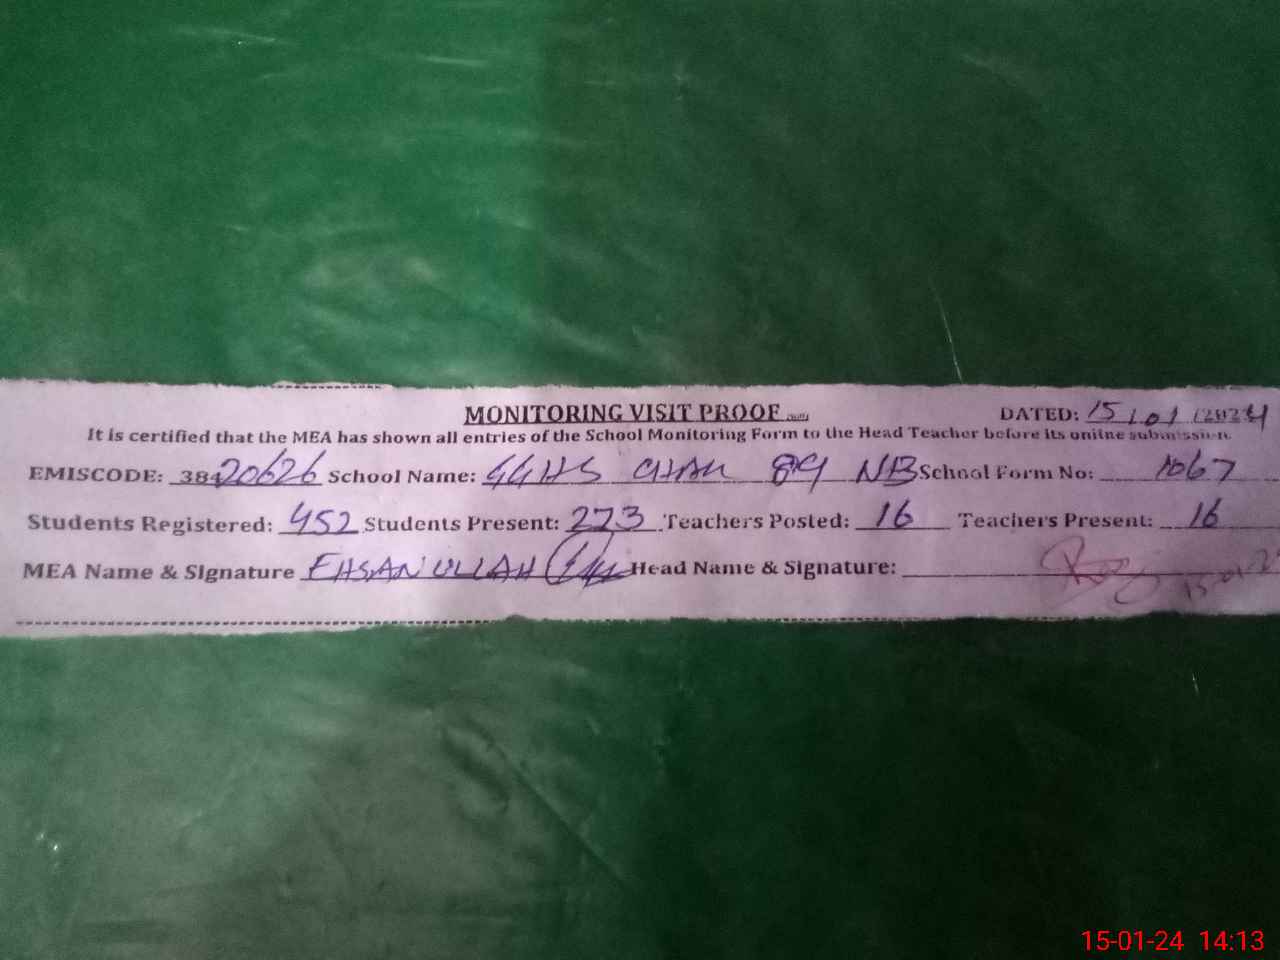 MONITORING VISIT PROOF
DATED: 15/01/2024
It is certified that the MEA has shown all entries of the School Monitoring Form to the Head Teacher before its online submission.
EMISCODE: 38420626 School Name: GGHS CHAK 89 NB School Form No: 1067
Students Registered: 452 Students Present: 273 Teachers Posted: 16 Teachers Present: 16
MEA Name & Signature EHSAN ULLAH Head Name & Signature:
15-01-24 14:13